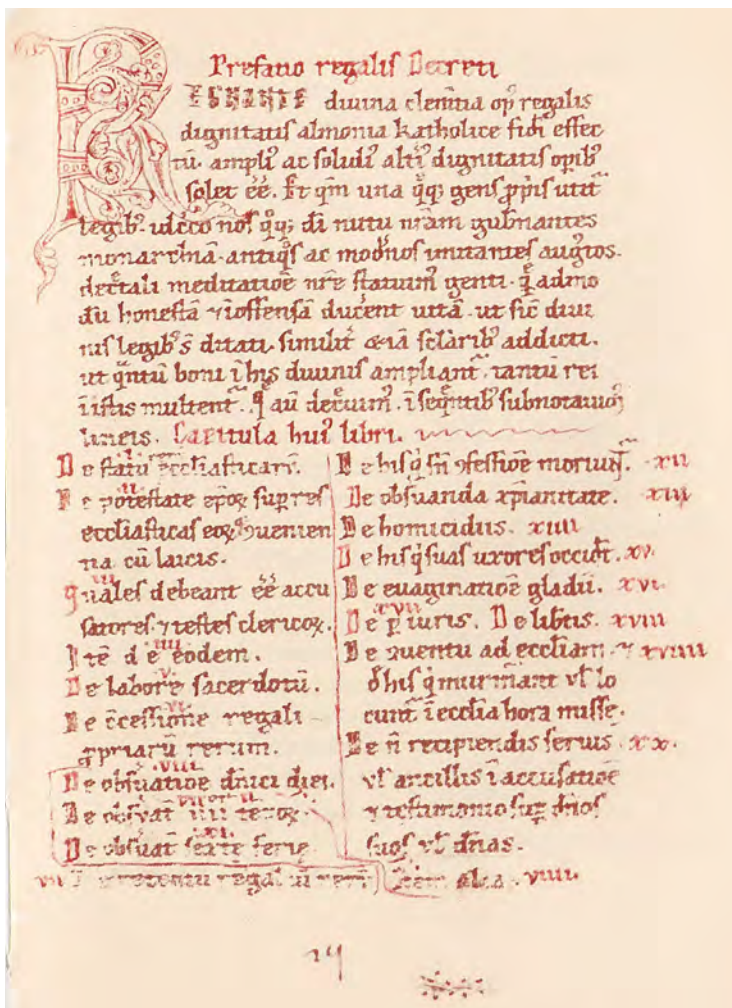 Prefatio regalis Decreti
REGNANTE diuina clemẽtia op̃ regalis
dignitatis almonia katholice fidi effec
tũ. ampli᷒ ac solidi᷒ alti᷒ dignitatis opib᷒
solet ẽe. Et qm̃ una q̃q; gens ꝓpriis utit᷑
legib᷒. idcco nos q̊q; di nutu nr̃am gub̃nantes
monarchiã. antiq̊s ac mod̃nos imitantes aug᷒tos.
decr̃tali meditatiõe nr̃e statuim᷒ genti. q̃ admo
dũ honestã ⁊ ĩoffensã ducẽent uitã. ut sic diui
nis legib᷒ s̃ ditati. similit᷑ ẽ iã sc̃larib᷒ addicti.
ut q̃ntũ boni ĩ his diuinis ampliant᷑. tantũ rei
ĩ istis multent᷑. q̃ aũ decr̃uim᷒. ĩ seq̃ntib᷒ subnotauim᷒
lineis. Capitula hui᷒ libri.
De statu ecc̃liasticarũ. i
De potestate ep̃oꝝ sup res ii
ecc̃liasticas eoꝝq; ꝯuenien
tia cũ laicis.
Quales debeant ẽe accu iii
satores. ⁊ testes clericoꝝ.
Itẽ de eodem. iiii
De labore sacerdotũ. v
De cc̃essione regali vi
ꝓpriarũ rerum.
De obs̃uatiõe dñici diei. viii
De obs̃uat᷑ iiii tẽpoꝝ.
De obs̃uat᷑ sexte ferie. xi
vii De retentu regaliũ rerũ
De his q̃ sñ ꝯfessiõe moriunt᷑. xii
De obs̃uanda xp̃ianitate. xiii
De homicidiis. xiiii
De his q̃ suas uxores occidũt. xv.
De euaginatiõe gladii. xvi.
De ꝑiuris. xvii De lib̃tis. xviii
De ꝯuentu ad ecc̃liam. ⁊ xviiii
d̃ his q̃ murm̃ant ul̃ lo
cunt᷑ ĩ ecc̃lia hora misse.
De ñ recipiendis seruis xx.
ul̃ ancillis ĩ accusatiõe
⁊ testimonio sup̃ dños
suos ul̃ dñas.
Item alia. viiii.
29